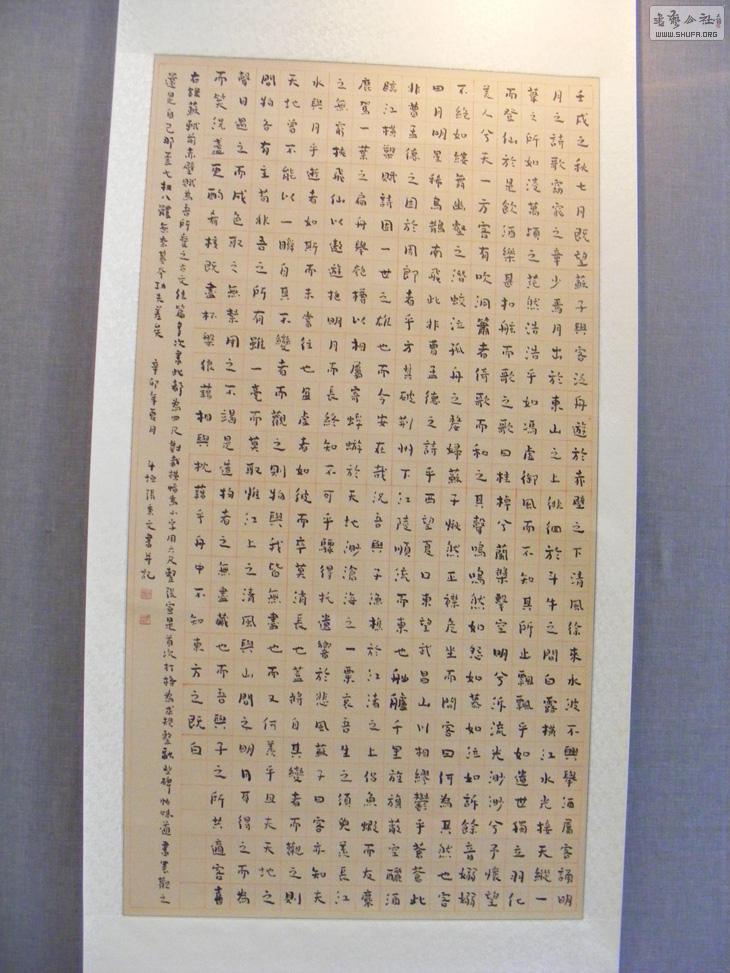 壬戌之秋七月既望蘇子與客泛舟遊於赤壁之下清風徐來水波不興舉酒屬客誦明
月之詩歌窈窕之章少焉月出於東山之上徘徊於斗牛之間白露橫江水光接天縱一
葦之所如淩萬頃之茫然浩浩乎如馮虛御風而不知其所止飄飄乎如遺世獨立羽化
而登仙於是飲酒樂甚扣舷而歌之歌曰桂棹兮蘭槳擊空明兮泝流光渺渺兮予懷望
美人兮天一方客有吹洞簫者倚歌而和之其聲嗚嗚然如怨如慕如泣如訴餘音嫋嫋
不絕如縷舞幽壑之潛蛟泣孤舟之嫠婦蘇子愀然正襟危坐而問客曰何為其然也客
曰月明星稀烏鵲南飛此非曹孟德之詩乎西望夏口東望武昌山川相繆鬱乎蒼蒼此
非曹孟德之困於周郎者乎方其破荊州下江陵順流而東也舳艫千里旌旗蔽空釃酒
臨江橫槊賦詩固一世之雄也而今安在哉況吾與子漁樵於江渚之上侶魚蝦而友麋
鹿駕一葉之扁舟舉匏樽以相屬寄蜉蝣於天地渺滄海之一粟哀吾生之須臾羨長江
之無窮挾飛仙以遨遊抱明月而長終知不可乎驟得托遺響於悲風蘇子曰客亦知夫
水與月乎逝者如斯而未嘗往也盈虛者如彼而卒莫消長也蓋將自其變者而觀之則
天地曾不能以一瞬自其不變者而觀之則物與我皆無盡也而又何羨乎且夫天地之
間物各有主苟非吾之所有雖一毫而莫取惟江上之清風與山間之明月耳得之而為
聲目遇之而成色取之無禁用之不竭是造物者之無盡藏也而吾與子之所共適客喜
而笑洗盞更酌肴核既盡杯槃狼藉相與枕藉乎舟中不知東方之既白
右錄蘇軾前赤壁賦為吾所愛之古文佳篇多次書此都為四尺對裁橫幅為小字用六尺整張宣是首次打格為求規整融些碑味道書畢觀之
還是自己那甚七相八體無奈基今功夫差矣 辛卯年夏月 張東文書并記
書藝公社
WWW.SHUFA.ORG